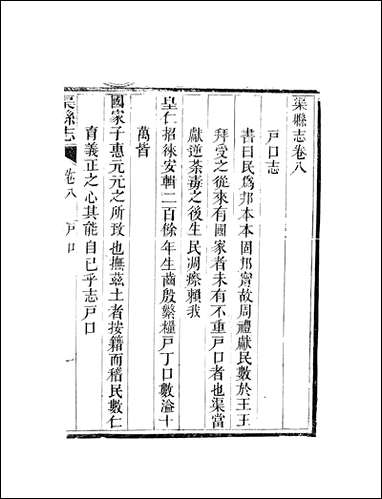 渠縣志卷八
戸口志
書曰民爲邦本本固邦寧故周禮獻民數於王王
拜受之從來有國家者未有不重戸口者也渠當
獻逆荼毒之後生民凋瘵賴我
皇仁招徠安輯二百餘年生齒殷繁糧戸丁口數溢十
萬皆
國家子惠元元之所致也撫兹土者按籍而稽民數仁
育義正之心其能自已乎志戸口
渠縣志 卷八 戸口